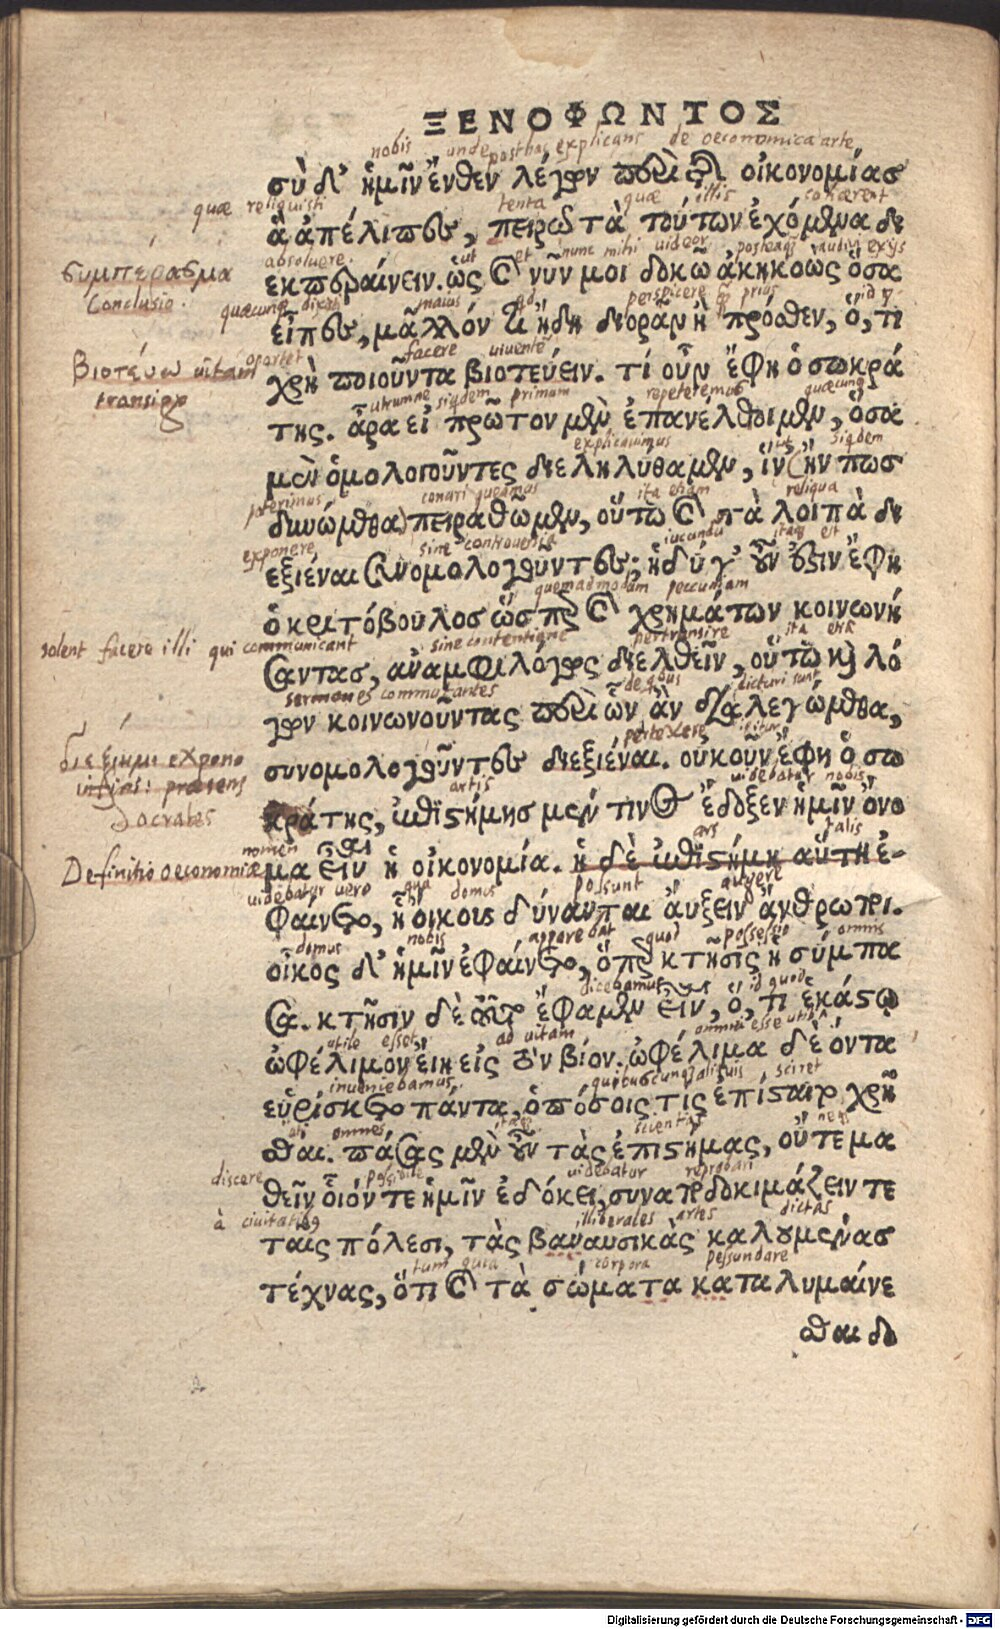 ΞΕΝΟΦΩΝΤΟΣ
nobis unde posthac explicans de oeconomica arte
σὺ δ' ἡμῖν ἔνθεν λέγων περὶ τῆς οἰκονομίας
quae reliquisti tenta quae illis cohaerent
ἀπέλιπες, πειρῶ τὰ τούτων ἐχόμενα δι
absoluere. ut et nunc mihi uideor, posteaq audiui ex ijs
εκπεραίνειν. ὡς καὶ νῦν μοι δοκῶ ἀκηκοὼς ὅσα
συμπέρασμα
Conclusio.
quaecunq dixisti maius perspicere prius id q
εἶπες, μᾶλλόν τι ἤδη διορᾶν ἢ πρόσθεν, ὅ, τι
Βιοτεύω uitam
transigo
oportet facere uiuentem
χρὴ ποιοῦντα βιοτεύειν. τί οὖν ἔφη ὁ σωκρά
utrumne siqdem primum repeteremus quaecunq
της. ἆρα εἰ πρῶτον μὲν ἐπανέλθοιμεν, ὅσα
explicauimus ut siqdem
μὲν ὁμολογοῦντες διεληλύθαμεν, ἵν' ἤν πως
poterimus conari queamus ita etiam reliqua
δυνώμεθα πειραθῶμεν, οὕτω καὶ τὰ λοιπὰ δι
exponere sine controuersia iucundu itaq est
εξιέναι συνομολογοῦντες; ἡδύ γ' οὖν ἐστιν ἔφη
quemadmodum pecuniam
ὁ κριτόβουλος ὥσπερ καὶ χρημάτων κοινωνή
solent facere illi qui communicant sine contentione pertransire ita etiã
σαντας, ἀναμφιλόγως διελθεῖν, οὕτω καὶ λό
sermones communicantes de qbus dicturi sunt
γων κοινωνοῦντας περὶ ὧν ἂν διαλεγώμεθα,
pertexere igitur
συνομολογοῦντες διεξιέναι. οὐκοῦν ἔφη ὁ σω
διέξειμι expono
praesens
Socrates
artis uidebatur nobis
κράτης, ἐπιστήμης μέν τινος ἔδοξεν ἡμῖν ὄνο
Definitio oeconomiae
nomen ars talis
μα εἶναι ἡ οἰκονομία. ἡ δὲ ἐπιστήμη αὕτη ἐ-
uidebatur uero qua domus possunt augere
φαίνετο, ᾗ οἴκους δύνανται αὔξειν ἄνθρωποι.
domus nobis apparebat quod possessio omnis
οἶκος δ' ἡμῖν ἐφαίνετο, ὅπερ κτῆσις ἡ σύμπα
dicebamus id quod
σα. κτῆσιν δὲ τοῦτο ἔφαμεν εἶναι, ὅ, τι ἑκάστῳ
utile esset ad uitam omnia esse utilia
ὠφέλιμον εἴη εἰς τὸν βίον. ὠφέλιμα δὲ ὄντα
inueniebamus quibuscunq aliquis sciret
εὑρίσκετο πάντα, ὁπόσοις τις ἐπίσταιτο χρῆ
uti omnes itaq scientias neq
σθαι. πάσας μὲν οὖν τὰς ἐπιστήμας, οὔτε μα
discere possibile uidebatur reprobari
θεῖν οἷόν τε ἡμῖν ἐδόκει, συναπεδοκιμάζειν τε
à ciuitatibq illiberales artes dictas
ταῖς πόλεσι, τὰς βαναυσικὰς καλουμένας
tum quia corpora pessundare
τέχνας, ὅτι καὶ τὰ σώματα καταλυμαίνε
σθαι δο
Digitalisierung gefördert durch die Deutsche Forschungsgemeinschaft - DFG